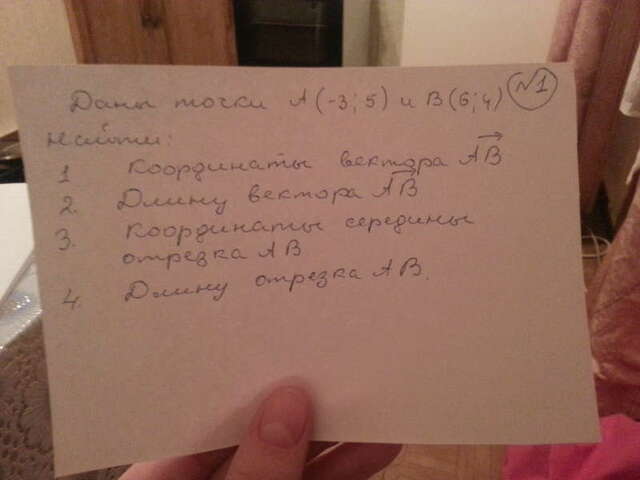 Даны точки А(-3; 5) и В(6; 4) №1
Найти:
1 Координаты вектора АВ
2. Длину вектора АВ
3. Координаты середины
отрезка АВ
4. Длину отрезка АВ.